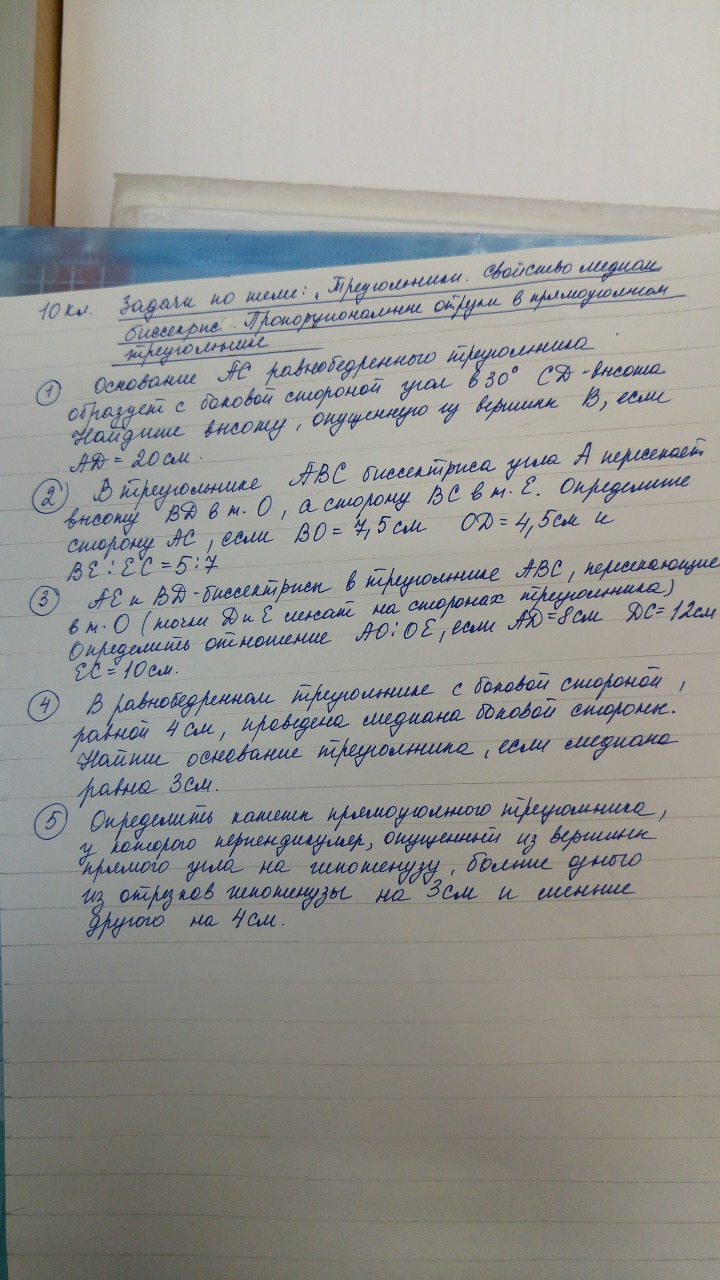 10 кл. Задачи по теме: „Треугольники. Свойство медиан
биссектрис. Пропорциональные отрезки в прямоугольном
треугольнике
① Основание AC равнобедренного треугольника
образует с боковой стороной угол в 30° CD - высота
Найдите высоту, опущенную из вершины B, если
AD = 20 см.
② В треугольнике ABC биссектриса угла A пересекает
высоту BD в т. O, а сторону BC в т. E. Определите
сторону AC, если BO = 7,5 см OD = 4,5 см и
BE : EC = 5 : 7
③ AE и BD - биссектрисы в треугольнике ABC, пересекающие
в т. O (точки D и E лежат на сторонах треугольника)
Определить отношение AO : OE, если AD = 8 см DC = 12 см
EC = 10 см.
④ В равнобедренном треугольнике с боковой стороной,
равной 4 см, проведена медиана боковой стороны.
Найти основание треугольника, если медиана
равна 3 см.
⑤ Определить катеты прямоугольного треугольника,
у которого перпендикуляр, опущенный из вершины
прямого угла на гипотенузу, больше одного
из отрезков гипотенузы на 3 см и меньше
другого на 4 см.